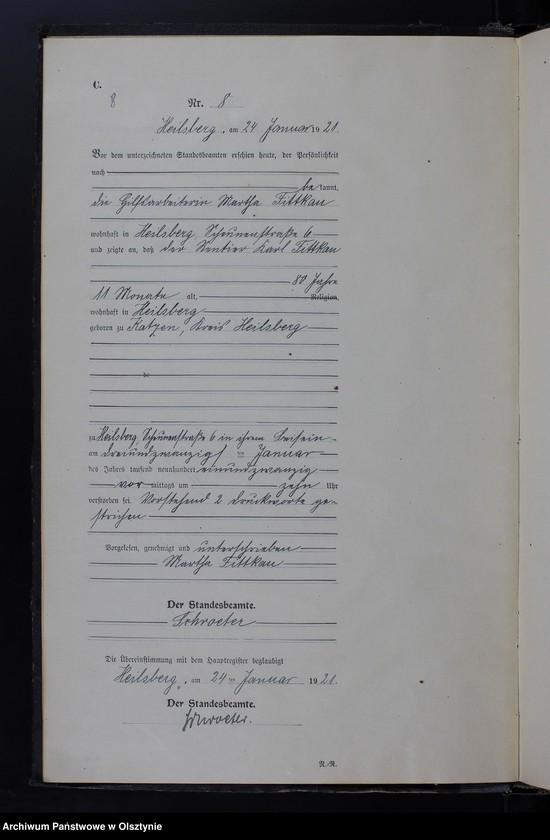 C.
8 Nr. 8
Heilsberg, am 24 Januar 1921.
Vor dem unterzeichneten Standesbeamten erschien heute, der Persönlichkeit
nach
be kannt,
die Hilfsarbeiterin Martha Fittkau
wohnhaft in Heilsberg, Scheunenstraße 6
und zeigte an, daß der Rentier Karl Fittkau
80 Jahre
11 Monate alt, Religion,
wohnhaft in Heilsberg
geboren zu Katzen, Kreis Heilsberg
de
zu Heilsberg, Scheunenstraße 6 in ihrem Beisein
am dreiundzwanzigsten Januar
des Jahres tausend neunhundert einundzwanzig
vor mittags um zehn Uhr
verstorben sei. Vorstehend 2 Druckworte ge-
strichen
Vorgelesen, genehmigt und unterschrieben
Martha Fittkau
Der Standesbeamte.
Schroeter
Die Übereinstimmung mit dem Hauptregister beglaubigt
Heilsberg, am 24 ten Januar 1921.
Der Standesbeamte.
Schroeter.
N.-R.
Archiwum Państwowe w Olsztynie